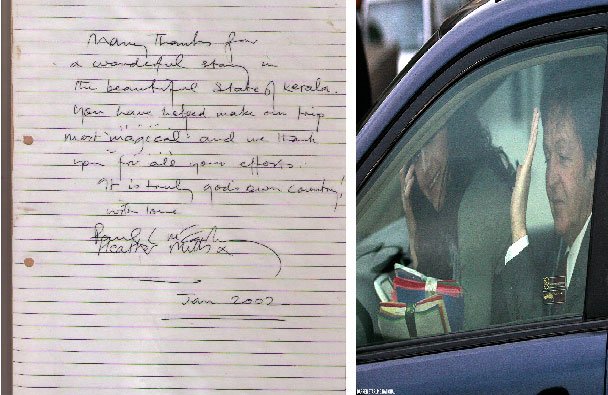 Many thanks for
a wonderful stay in
the beautiful State of Kerala.
You have helped make our trip
most "magical" and we thank
you for all your efforts.
It is truly gods own country!
with love
Paul
Heather Mills x
Jan 2002